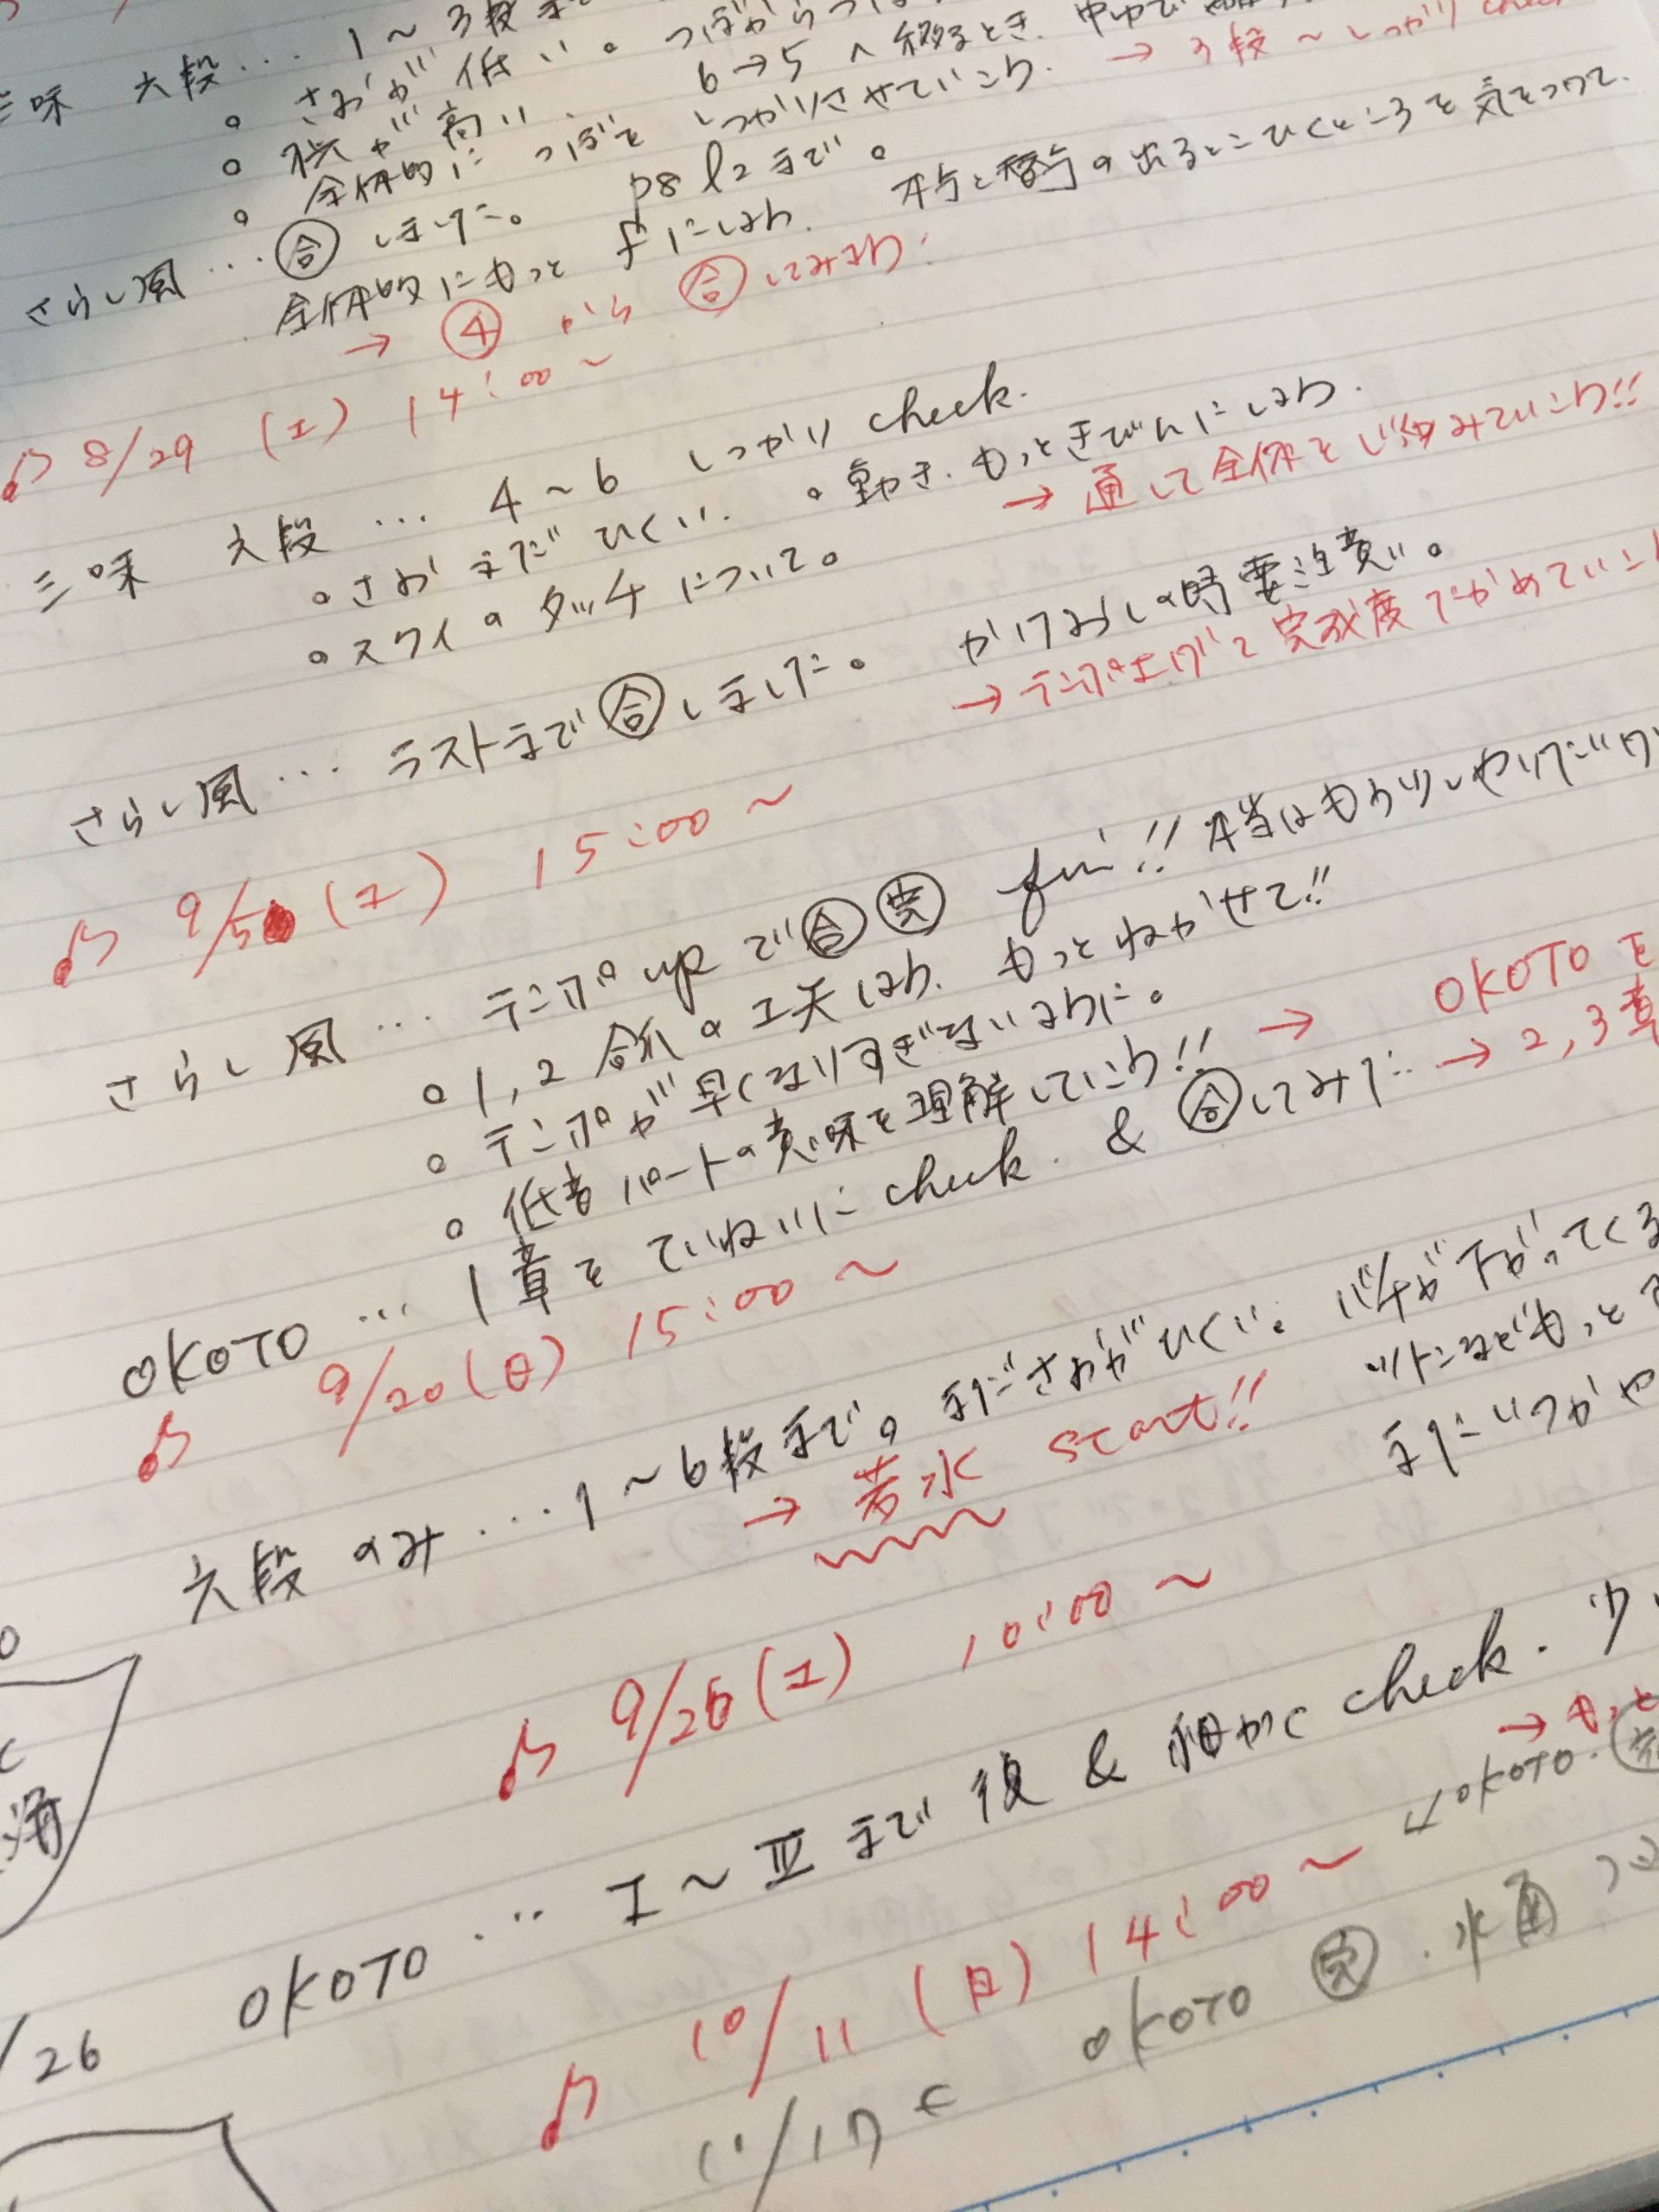 三味 六段… 1〜3段ま
。さおが低い。つぼから
。撥が高い 6→5へ移るとき、
。全体的につぼをしっかりさせていこう。 → 3段〜しっかりcheck
さらし風…㊁合しました。 p8 l2まで。
全体的にもっとfにしよう。 本手と替手の出るとこひくところを気をつけて。
→ ④から合してみよう!
♪ 8/29 (土) 14:00〜
三味 六段… 4〜6 しっかりcheck.
。さおまだひくい。 。動き、もっときびんにしよう。
。スクイのタッチについて。 → 通して全体をじくみていこう!!
さらし風… ラストまで合しました。 かけおしの時要注意。
→ テンポ上げて完成度たかめていこ
♪ 9/5 (土) 15:00〜
さらし風… テンポupで合完 fin!! 本当はもう少しやりたい
。1,2 合爪の工夫しよう。もっとねかせて!!
。テンポが早くなりすぎないように。
。低音パートの意味を理解していこう!! → OKOTOを
OKOTO … 1章をていねいにcheck. & 合してみた → 2,3章
♪ 9/20(日) 15:00〜
六段のみ…1〜6段まで。まださおがひくい。バチが下がってくる
→ 若水 start!! ツトンなどもっと
♪ 9/26(土) 10:00〜
OKOTO … I〜Ⅲまで復&細かくcheck.少
→ もっと
OKOTO.
♪ 10/11 (日) 14:00〜
OKOTO 完.水面
11/17
/26
海